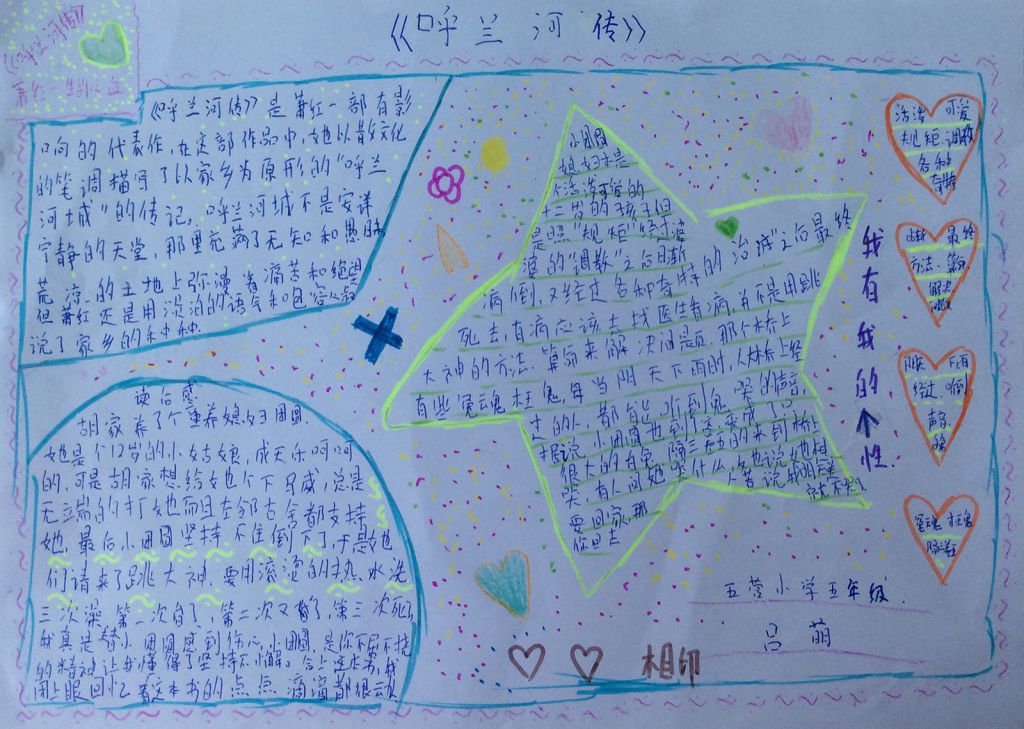 《呼兰河传》
《呼兰河传》
萧红一生的心血
《呼兰河传》是萧红一部有影
响的代表作,在这部作品中,她以散文化
的笔调描写了以家乡为原形的“呼兰
河城”的传记。呼兰河城不是安详
宁静的天堂,那里充满了无知和愚昧
荒凉的土地上弥漫着痛苦和绝望
但萧红还是用淡泊的语气和包容入叙
说了家乡的种种.
读后感
胡家养了个童养媳妇团圆.
她是个12岁的小姑娘,成天乐呵呵
的,可是胡家想给她个下马威,总是
无立端的打她而且左邻右舍都支持
她,最后小团圆坚持不住倒下了,于是她
们请来了跳大神,要用滚烫的热水洗
三次澡,第一次昏了,第二次又昏了,第三次死了,
我真是替小团圆感到伤心,小团圆是你不屈不挠
的精神让我懂得了坚持不懈。合上这本书,我
闭上眼回忆着这本书的点点滴滴都很
小团圆
媳妇于是
个活泼可爱的
十二岁的孩子但
是照“规矩”经过婆
婆的“调教”之后日渐
病倒,又经过各种奇特的治试”之后最终
死去,有病应该去找医生看病,并不是用跳
大神的方法.算命来解决问题.那个桥上
有些冤魂枉鬼,每当阴天下雨时,人桥上经
过的人,都有些听到鬼哭的声音
据说,小团圆她到了这变成了个
很大的白兔,隔三差五的来到桥上
哭,有人问她哭什么,
要回家,那
你回去
就不哭.
我有我的个性.
活泼 可爱
规矩 调教
各种
奇特
日渐 最终
方法、算命
解决
阴天 下雨
经过 听到
声音
冤魂 枉鬼
五营小学五年级.
吕萌
相印